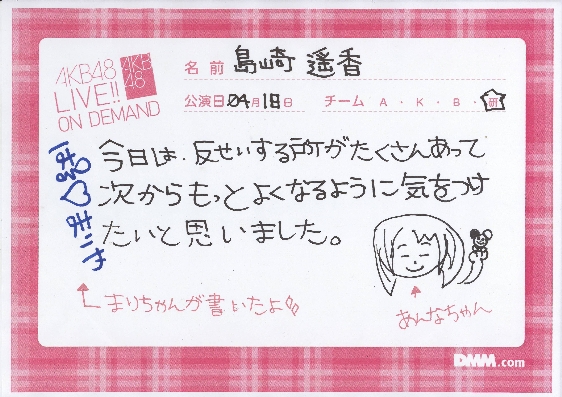 AKB48
LIVE!!
ON DEMAND
AKB
48
名前 島崎 遥香
公演日 04月18日 チーム A・K・B・研
今日は、反せいする所がたくさんあって
次からもっとよくなるように気をつけ
たいと思いました。
ぱる♡まりや
まりちゃんが書いたよ
あんなちゃん
DMM.com